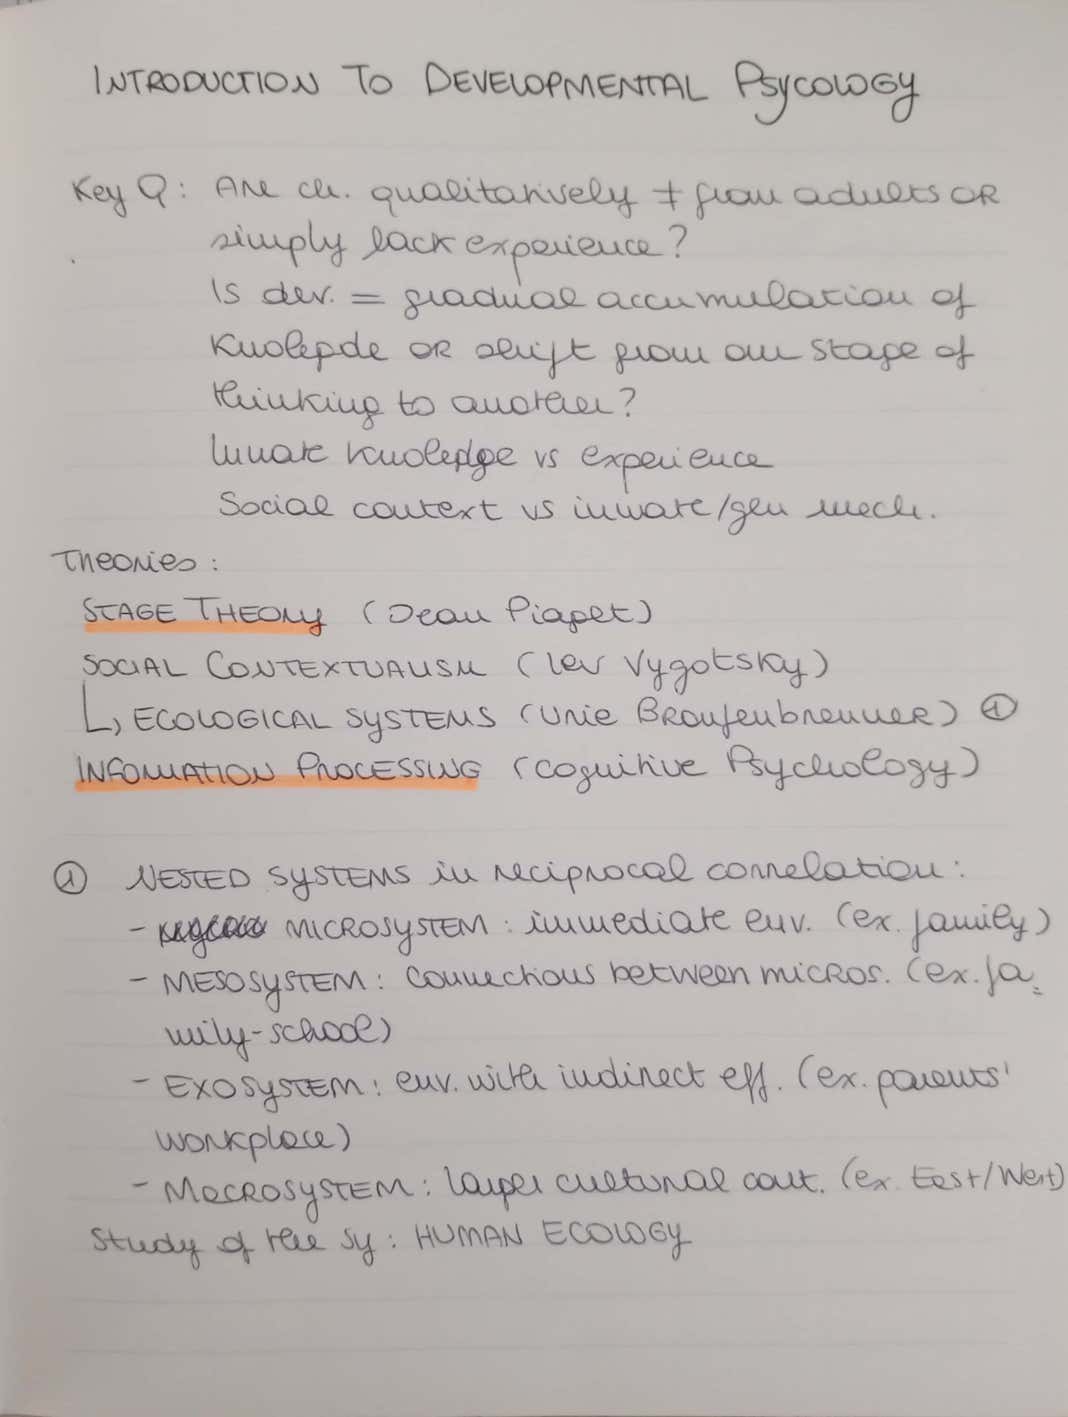 INTRODUCTION TO DEVELOPMENTAL PSYCOLOGY
Key Q: Are ch. qualitatively ≠ from adults OR
simply lack experience?
Is dev. = gradual accumulation of
Knolegde OR shift from one stage of
thinking to another?
Innate knolegdge vs experience
Social context vs innate/gen mech.
Theories:
STAGE THEORY (Jean Piaget)
SOCIAL CONTEXTUALISM (Lev Vygotsky)
↳ ECOLOGICAL SYSTEMS (Urie Bronfenbrenner) ①
INFORMATION PROCESSING (Cognitive Psychology)
① NESTED SYSTEMS in reciprocal correlation:
- MICROSYSTEM: immediate env. (ex. family)
- MESOSYSTEM: connections between micros. (ex. fa=
mily-school)
- EXOSYSTEM: env. with indirect eff. (ex. parents'
workplace)
- MACROSYSTEM: larger cultural cont. (ex. East/West)
Study of the sy: HUMAN ECOLOGY